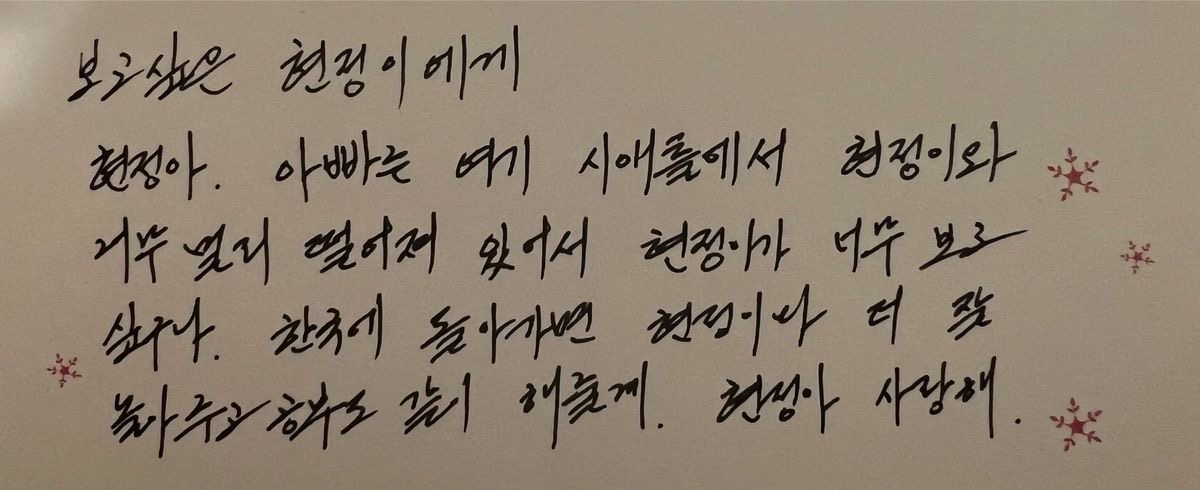 보고싶은 현정이에게
현정아. 아빠는 여기 시애틀에서 현정이와
너무 멀리 떨어져 있어서 현정이가 너무 보고
싶구나. 한국에 돌아가면 현정이와 더 잘
놀아주고 공부도 같이 해줄게. 현정아 사랑해.